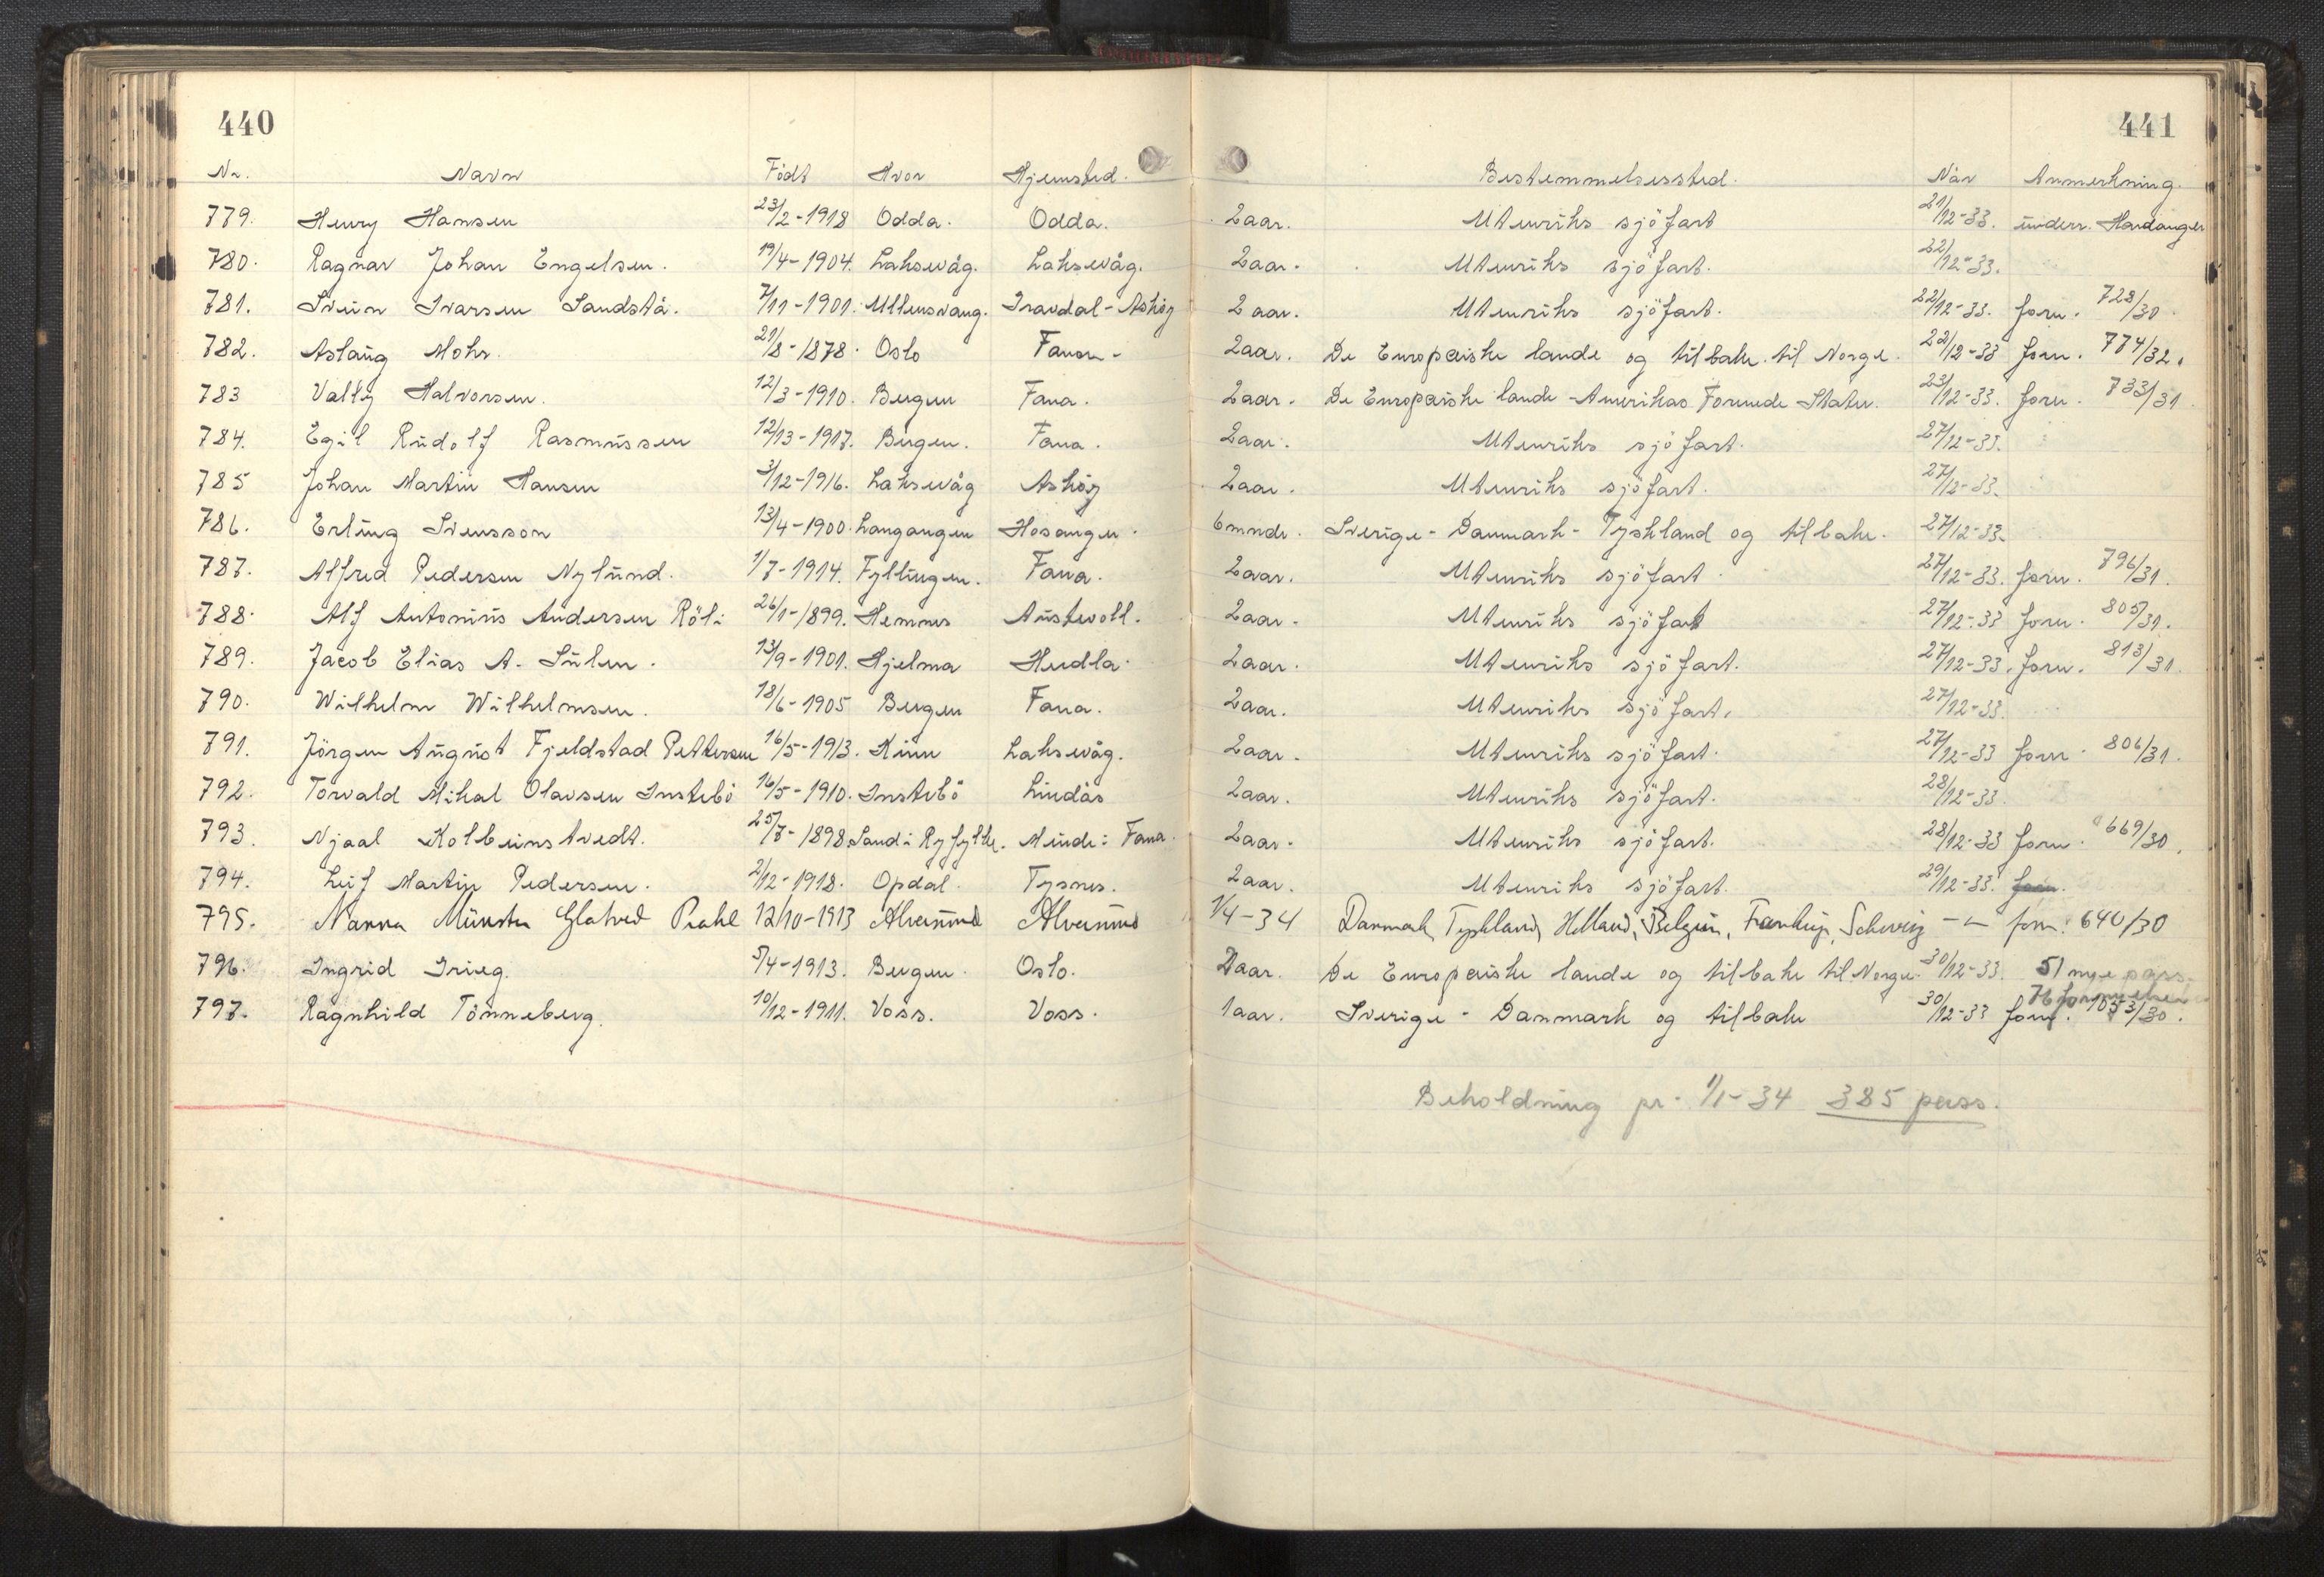 440
441
Nr. Navn Födt Hvor Hjemsted. Bestemmelsessted. Når Anmerkning.
779. Henry Hansen 23/2-1918 Odda. Odda. 2aar. Utenriks sjöfart 21/12-33. underr. Hardanger
780. Ragnar Johan Engelsen. 19/4-1904. Laksevåg. Laksevåg. 2aar. Utenriks sjöfart. 22/12-33.
781. Svein Ivarsen Sandstå. 7/11-1901. Ullensvang. Askøy 2 aar. Utenriks sjöfart. 22/12-33. forn. 728/30.
782. Aslaug Mohr. 21/8-1878. Oslo Fana. 2aar. De Europeiske lande og tilbake til Norge. 22/12-33 forn. 774/32.
783 Vally Halvorsen. 12/3-1910. Bergen Fana. 2aar. De Europeiske lande - Amerikas Forenede Stater. 23/12-33. forn. 733/31
784. Egil Rudolf Rasmussen 12/13-1917. Bergen. Fana. 2aar. Utenriks sjöfart. 27/12-33.
785 Johan Martin Hansen 3/12-1916. Laksevåg Askøy 2aar. Utenriks sjöfart. 27/12-33.
786. Erling Svensson 13/4-1900. Langangen Hosanger. 6mndr. Sverige - Danmark - Tyskland og tilbake. 27/12-33.
787. Alfred Pedersen Nylund. 1/7-1914. Fyllingen. Fana. 2aar. Utenriks sjöfart. 27/12-33. forn. 796/31.
788. Alf Antonius Andersen Röli 26/1-1899. Hemnes Austevoll. 2aar. Utenriks sjöfart 27/12-33 forn. 805/31.
789. Jacob Elias A. Sulen. 13/9-1901. Hjelma Herdla. 2aar. Utenriks sjöfart. 27/12-33. forn. 813/31.
790. Wilhelm Wilhelmsen. 18/6-1905 Bergen Fana. 2aar. Utenriks sjöfart. 27/12-33.
791. Jörgen August Fjeldstad Pettersen 16/5-1913. Kinn Laksevåg. 2aar. Utenriks sjöfart. 27/12-33 forn. 806/31.
792. Torvald Mikal Olavsen Instebö 16/5-1910. Instebö Lindås 2aar. Utenriks sjöfart. 28/12-33.
793. Njaal Kolbeinstvedt. 25/7-1898. Sand i Ryfylke. Minde i Fana. 2aar. Utenriks sjöfart. 28/12-33 forn. 669/30.
794. Leif Martin Pedersen. 2/12-1918. Opdal. Tysnes. 2aar. Utenriks sjöfart. 29/12-33. forn.
795. Nanna Münster Glatved Prahl 12/10-1913 Alversund Alversund 1/4-34 Danmark, Tyskland, Holland, Belgien, Frankrig, Schweiz - - forn. 640/30
796. Ingrid Grieg. 5/4-1913. Bergen. Oslo. 2aar. De Europeiske lande og tilbake til Norge. 30/12-33. 51 nye pass.
76 fornyelser
797. Ragnhild Tönneberg. 10/12-1911. Voss. Voss. 1aar. Sverige - Danmark og tilbake 30/12-33 forn. 1053/30.
Beholdning pr. 1/1-34 385 pass.